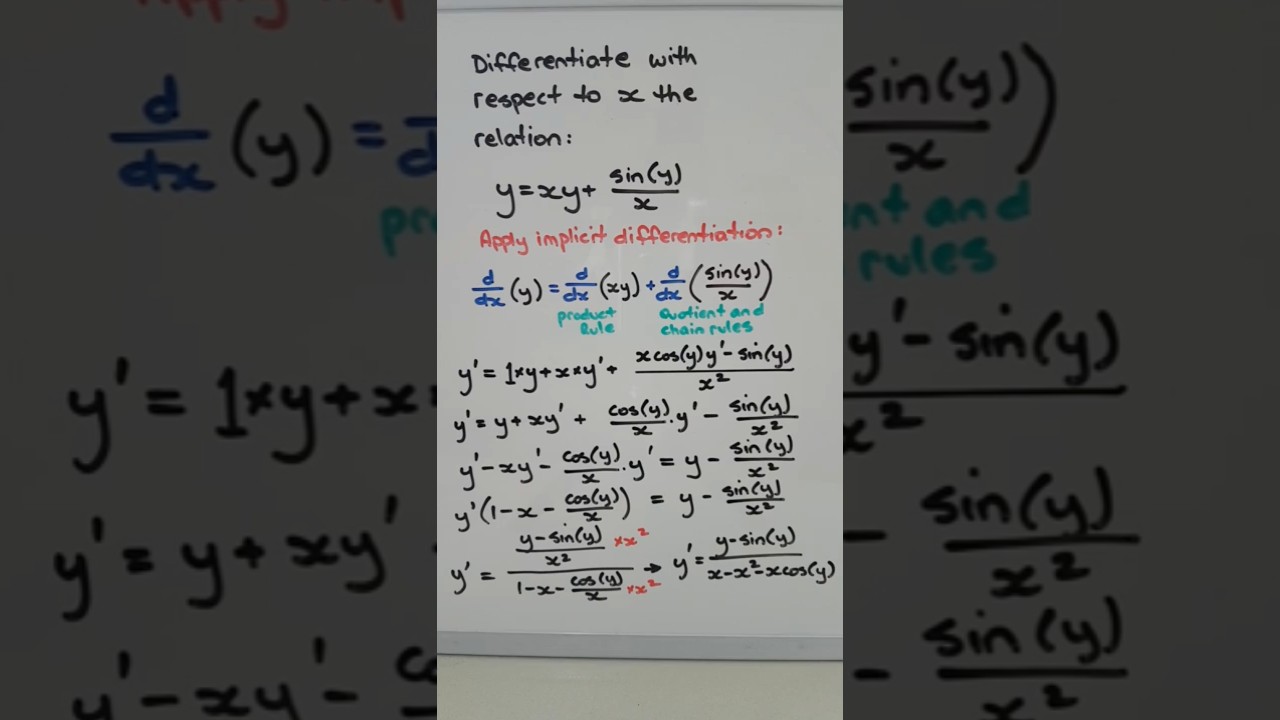 Differentiate with
respect to x the
relation:
y = xy + sin(y)/x
Apply implicit differentiation:
d/dx (y) = d/dx (xy) + d/dx (sin(y)/x)
product Rule Quotient and chain rules
y' = 1×y + x×y' + (x cos(y) y' - sin(y))/x²
y' = y + xy' + cos(y)/x · y' - sin(y)/x²
y' - xy' - cos(y)/x · y' = y - sin(y)/x²
y'(1 - x - cos(y)/x) = y - sin(y)/x²
y' = ((y - sin(y))/x² ××²)/(1 - x - cos(y)/x ××²) → y' = (y - sin(y))/(x - x² - x cos(y))